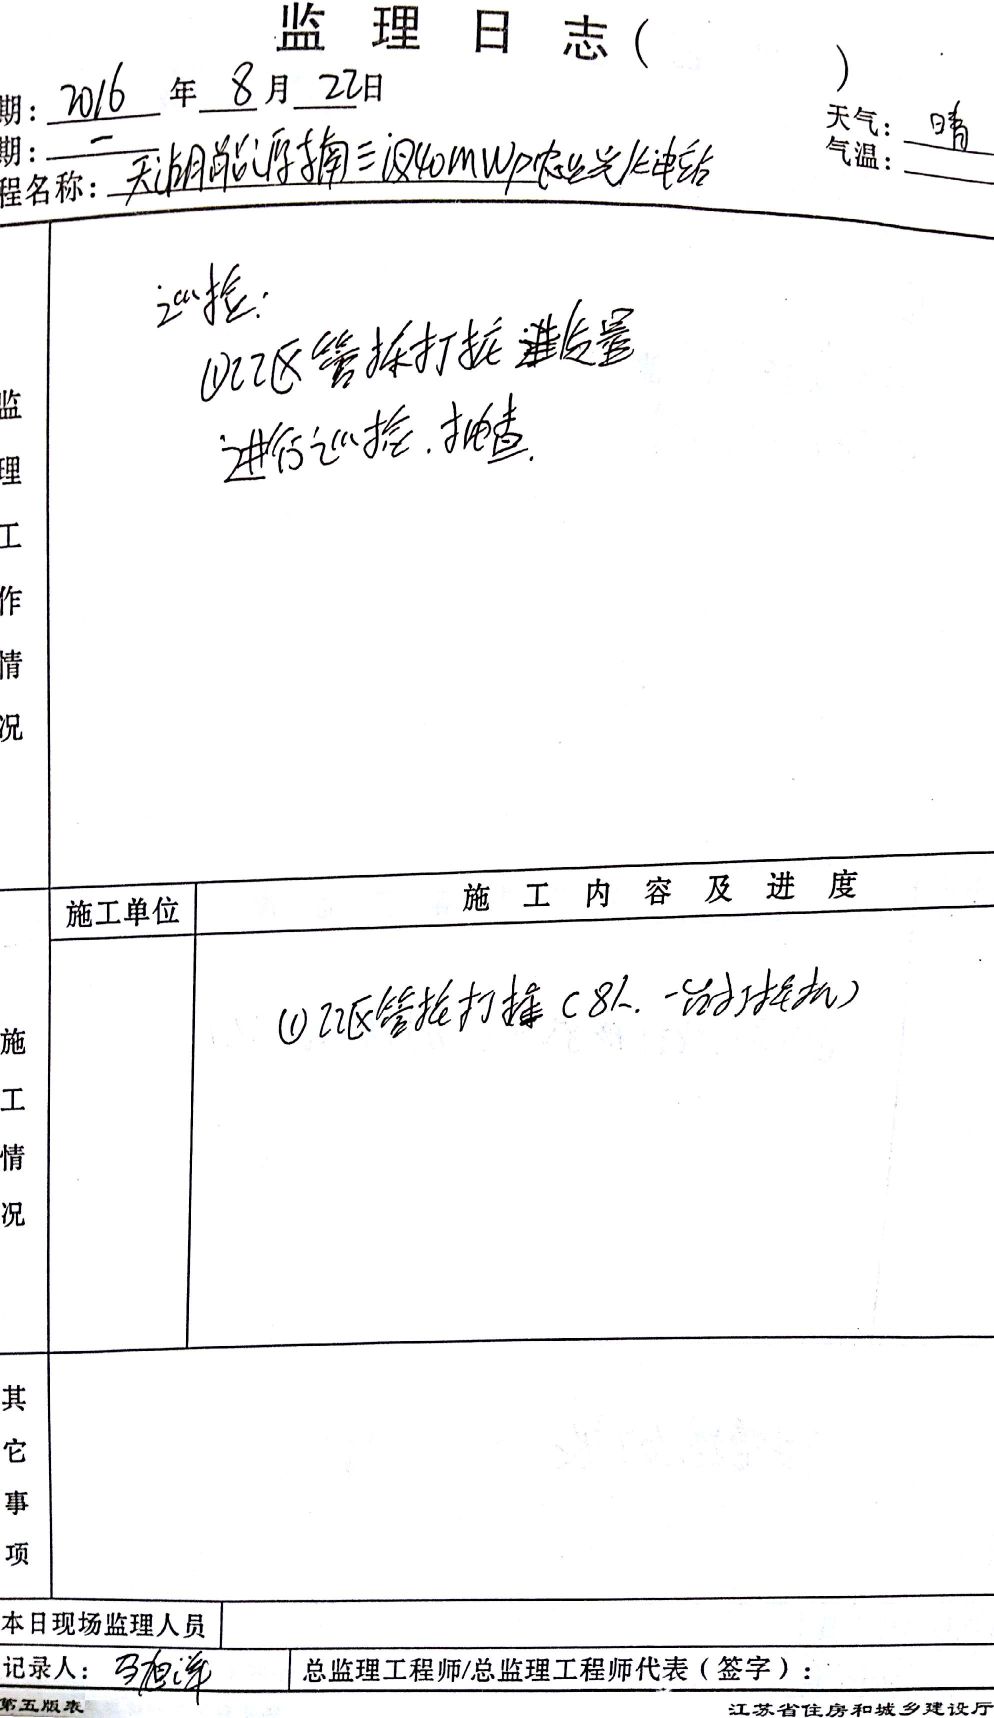 监理日志(          )
期: 2016 年 8 月 22日
天气: 晴
期: 一
气温:
程名称: 天湖 三 40MWp农业光伏电站
监理工作情况
巡检:
①22区管桩打桩 质量
进行巡检.抽查.
施工单位
施工内容及进度
施工情况
①22区管桩打桩(8人.一台打桩机)
其它事项
本日现场监理人员
记录人: 马
总监理工程师/总监理工程师代表(签字):
第五版表
江苏省住房和城乡建设厅